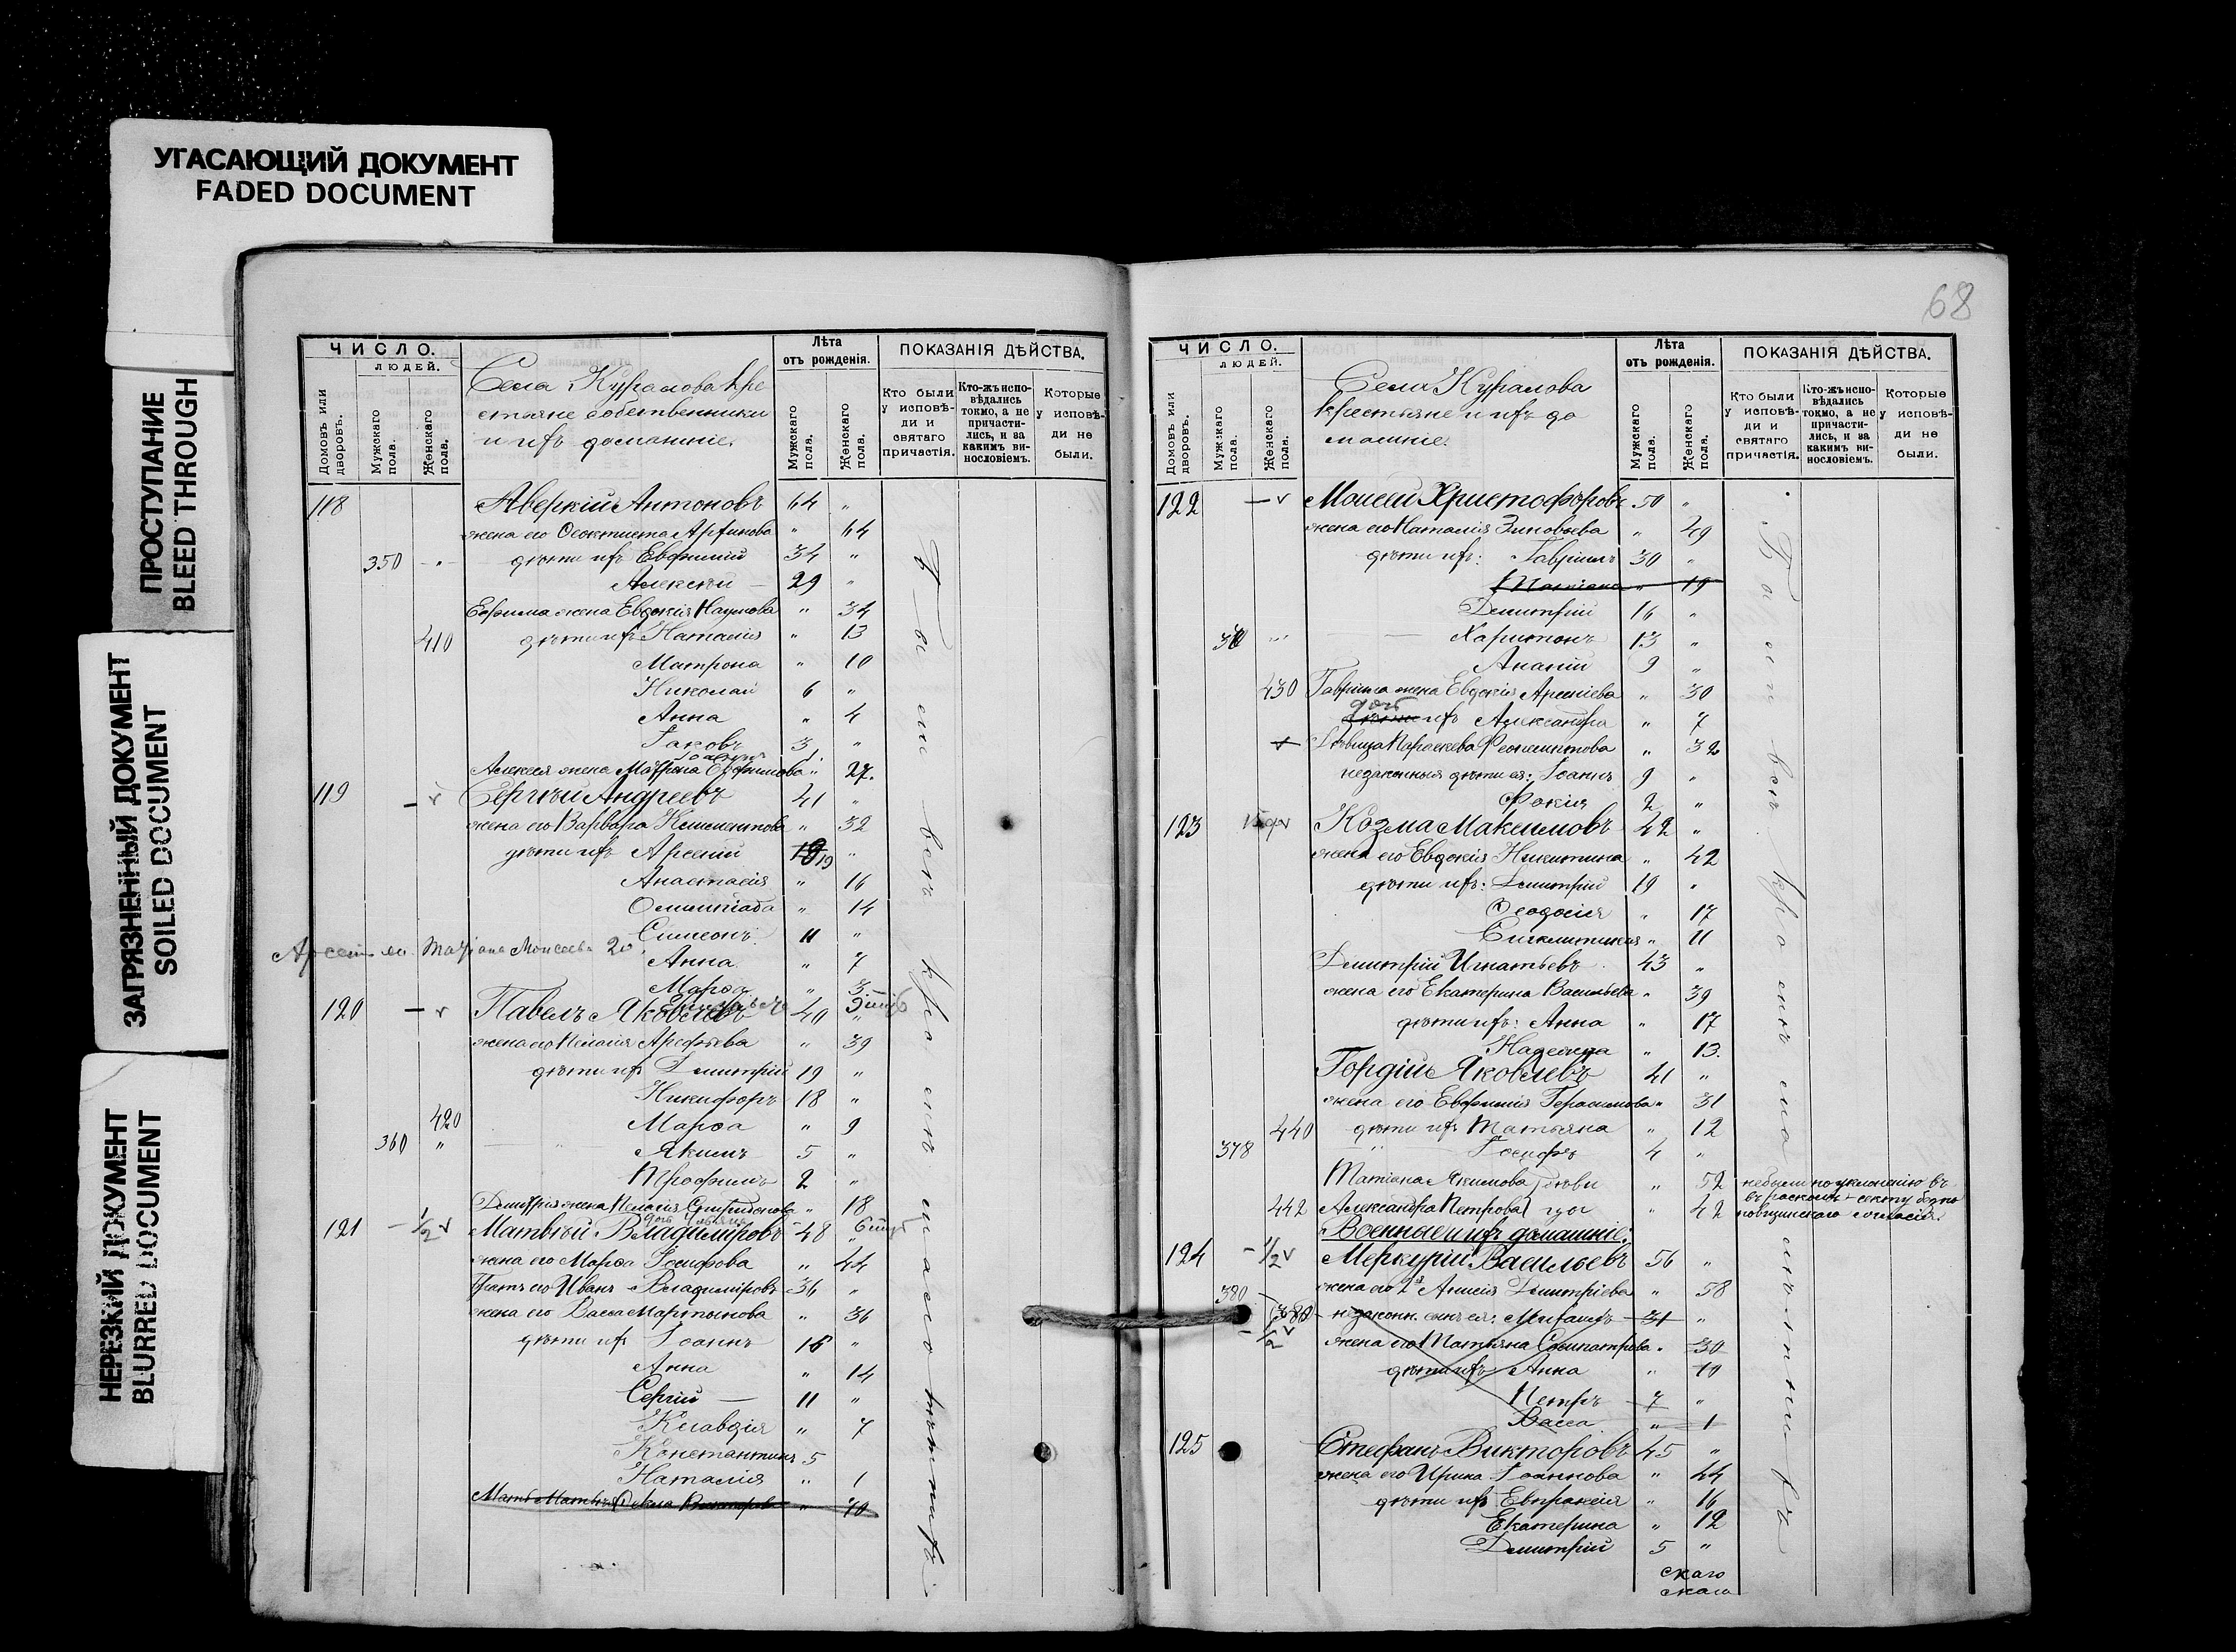 УГАСАЮЩИЙ ДОКУМЕНТ
FADED DOCUMENT
ПРОСТУПАНИЕ
BLEED THROUGH
ЗАГРЯЗНЕННЫЙ ДОКУМЕНТ
SOILED DOCUMENT
НЕРЕЗКИЙ ДОКУМЕНТ
BLURRED DOCUMENT
ЧИСЛО.
ЛЮДЕЙ.
Домовъ или дворовъ.
Мужскаго пола.
Женскаго пола.
Села Куралова кре
стьяне собственники
и ихъ домашніе.
Лѣта
отъ рожденія.
Мужскаго пола.
Женскаго пола.
ПОКАЗАНІЯ ДѢЙСТВА.
Кто были у исповѣди и святаго причастія.
Кто-жъ исповѣдались токмо, а не причастились, и за какимъ винословіемъ.
Которые у исповѣди не были.
118 Аверкій Антоновъ 64 "
жена его Ѳеоктиста " 64
350 " дѣти ихъ Евфимій 34 "
Алексѣй 29 "
Ефима жена Евдокія Наумова " 34
410 дѣти ихъ Наталія " 13
Матрона " 10
Николай 6 "
Анна " 4
Іаковъ 3 "
Алексея жена Матрона Евфимова " 27.
119 – v Сергѣй Андреевъ 41 "
жена его Варвара Климентова " 32
дѣти ихъ Арсеній 19 "
Анастасія " 16
Олимпіада " 14
Симеонъ 11 "
Татіана Моисеева 20
Анна " 7
Марѳа " 3
120 – v Павелъ Яковлевъ 40 "
жена его Пелагія Арефьева " 39
дѣти ихъ Димитрій 19 "
Никифоръ 18 "
420 Марѳа " 9
360 " Якимъ 5 "
Трофимъ 2 "
Димитрія жена Пелагія Спиридонова " 18
121 – 1/2 v Матвѣй Владиміровъ 48 "
жена его Марѳа Іосифова " 44
Братъ его Иванъ Владиміровъ 36 "
жена его Васса Мартынова " 36
дѣти ихъ Іоаннъ 16 "
Анна " 14
Сергій 11 "
Клавдія " 7
Константинъ 5
Наталія " 1
Мать Матвѣя " 70
Были всѣ кромѣ малолѣтнихъ
68
ЧИСЛО.
ЛЮДЕЙ.
Домовъ или дворовъ.
Мужскаго пола.
Женскаго пола.
Села Куралова
крестьяне и ихъ до
машніе.
Лѣта
отъ рожденія.
Мужскаго пола.
Женскаго пола.
ПОКАЗАНІЯ ДѢЙСТВА.
Кто были у исповѣди и святаго причастія.
Кто-жъ исповѣдались токмо, а не причастились, и за какимъ винословіемъ.
Которые у исповѣди не были.
122 – v Моисей Христофоровъ 50 "
жена его Наталія Зиновьева " 49
дѣти ихъ: Гавріилъ 30 "
Татіана " 19
Димитрій 16 "
Харитонъ 13 "
Ананій 9 "
430 Гавріила жена Евдокія Арсеніева " 30
дочь ихъ Александра " 7
Дѣвица Параскева " 32
незаконныя дѣти ея: Іоаннъ 9 "
Фокія 2 "
123 Козма Максимовъ 42 "
жена его Евдокія Никитина " 42
дѣти ихъ: Димитрій 19 "
Ѳеодосія " 17
Сигклитикія " 11
Димитрій Игнатьевъ 43 "
жена его Екатерина Васильева " 39
дѣти ихъ: Анна " 17
Надежда " 13.
Гордій Яковлевъ 41 "
жена его Евфимія Герасимова " 31
440 дѣти ихъ Татьяна " 12
378 Іосифъ 4 "
Татіана Якимова " 52
442 Александра Петрова " 42
Военные и ихъ домашніе.
124 – 1/2 v Меркурій Васильевъ 56 "
380 жена его Анисія Димитріева " 58
незаконн. сынъ ея: Михаилъ 31 "
1/2 v жена его Татьяна Сосипатрова " 30
дѣти ихъ Анна " 10
Петръ 7 "
Васса " 1
125 Стефанъ Викторовъ 45 "
жена его Ирина Іоаннова " 44
дѣти ихъ Евпраксія " 16
Екатерина " 12
Димитрій 5 "
скаго
скаго